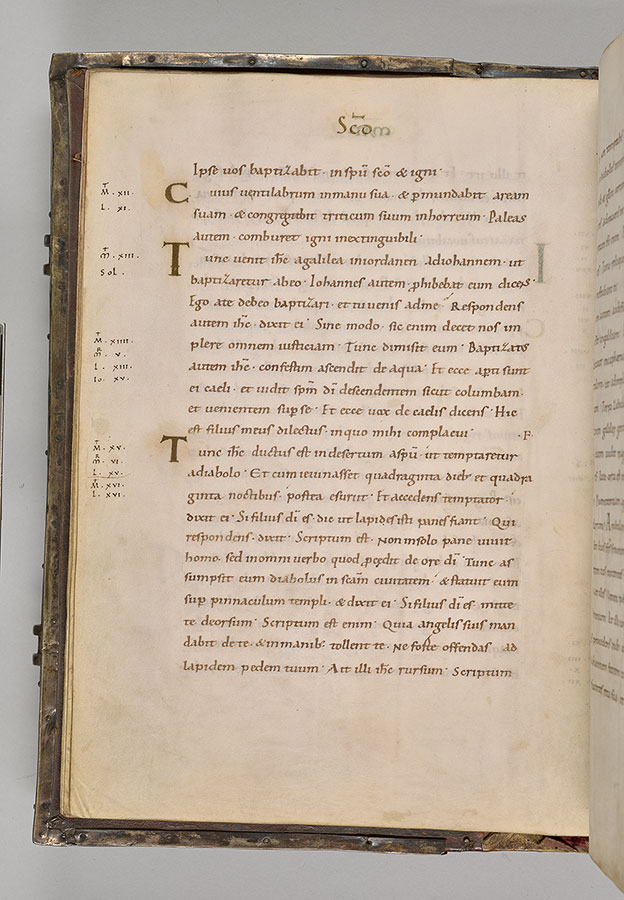 Scdo
Ipse uos baptizabit · in spu sco & igni ·
Cuius uentilabrum in manu sua · & pmundabit aream
suam · & congregabit triticum suum in horreum · Paleas
autem · comburet igni inextinguibili ·
Tunc uenit ihc a galilea in iordanen ad iohannem · ut
baptizaretur ab eo · Iohannes autem phibebat eum dicens ·
Ego a te debeo baptizari · et tu uenis ad me · Respondens
autem ihc · dixit ei · Sine modo · sic enim decet nos in
plere omnem iusticiam · Tunc dimisit eum · Baptizatus
autem ihc · confestim ascendit de aqua · Et ecce apti sunt
ei caeli · et uidit spm di descendentem sicut columbam ·
et uenientem sup se · Et ecce uox de caelis dicens · Hic
est filius meus dilectus · in quo mihi complacui · · F ·
Tunc ihc ductus est in desertum a spu · ut temptaretur
a diabolo · Et cum ieiunasset quadraginta dieb · et quadra
ginta noctibus · postea esurut · Et accedens temptator ·
dixit ei · Si filius di es · dic ut lapides isti panes fiant · Qui
respondens · dixit · Scriptum est · Non in solo pane uiuit
homo · sed in omni uerbo quod pcedit de ore di · Tunc as
sumpsit eum diabolus in scam ciuitatem · & statuit eum
sup pinnaculum templi · & dixit ei · Si filius di es mitte
te deorsum · Scriptum est enim · Quia angelis suis man
dabit de te · & in manib · tollent te · Ne forte offendas ad
lapidem pedem tuum · Ait illi ihc rursum · Scriptum
T
M · XII ·
L · XI ·
T
M · XIII ·
Sol ·
T
M · XIIII ·
R
M · V ·
L · XIII ·
Io · XV ·
T
M · XV ·
R
M · VI ·
L · XV ·
T
M · XVI ·
L · XVI ·